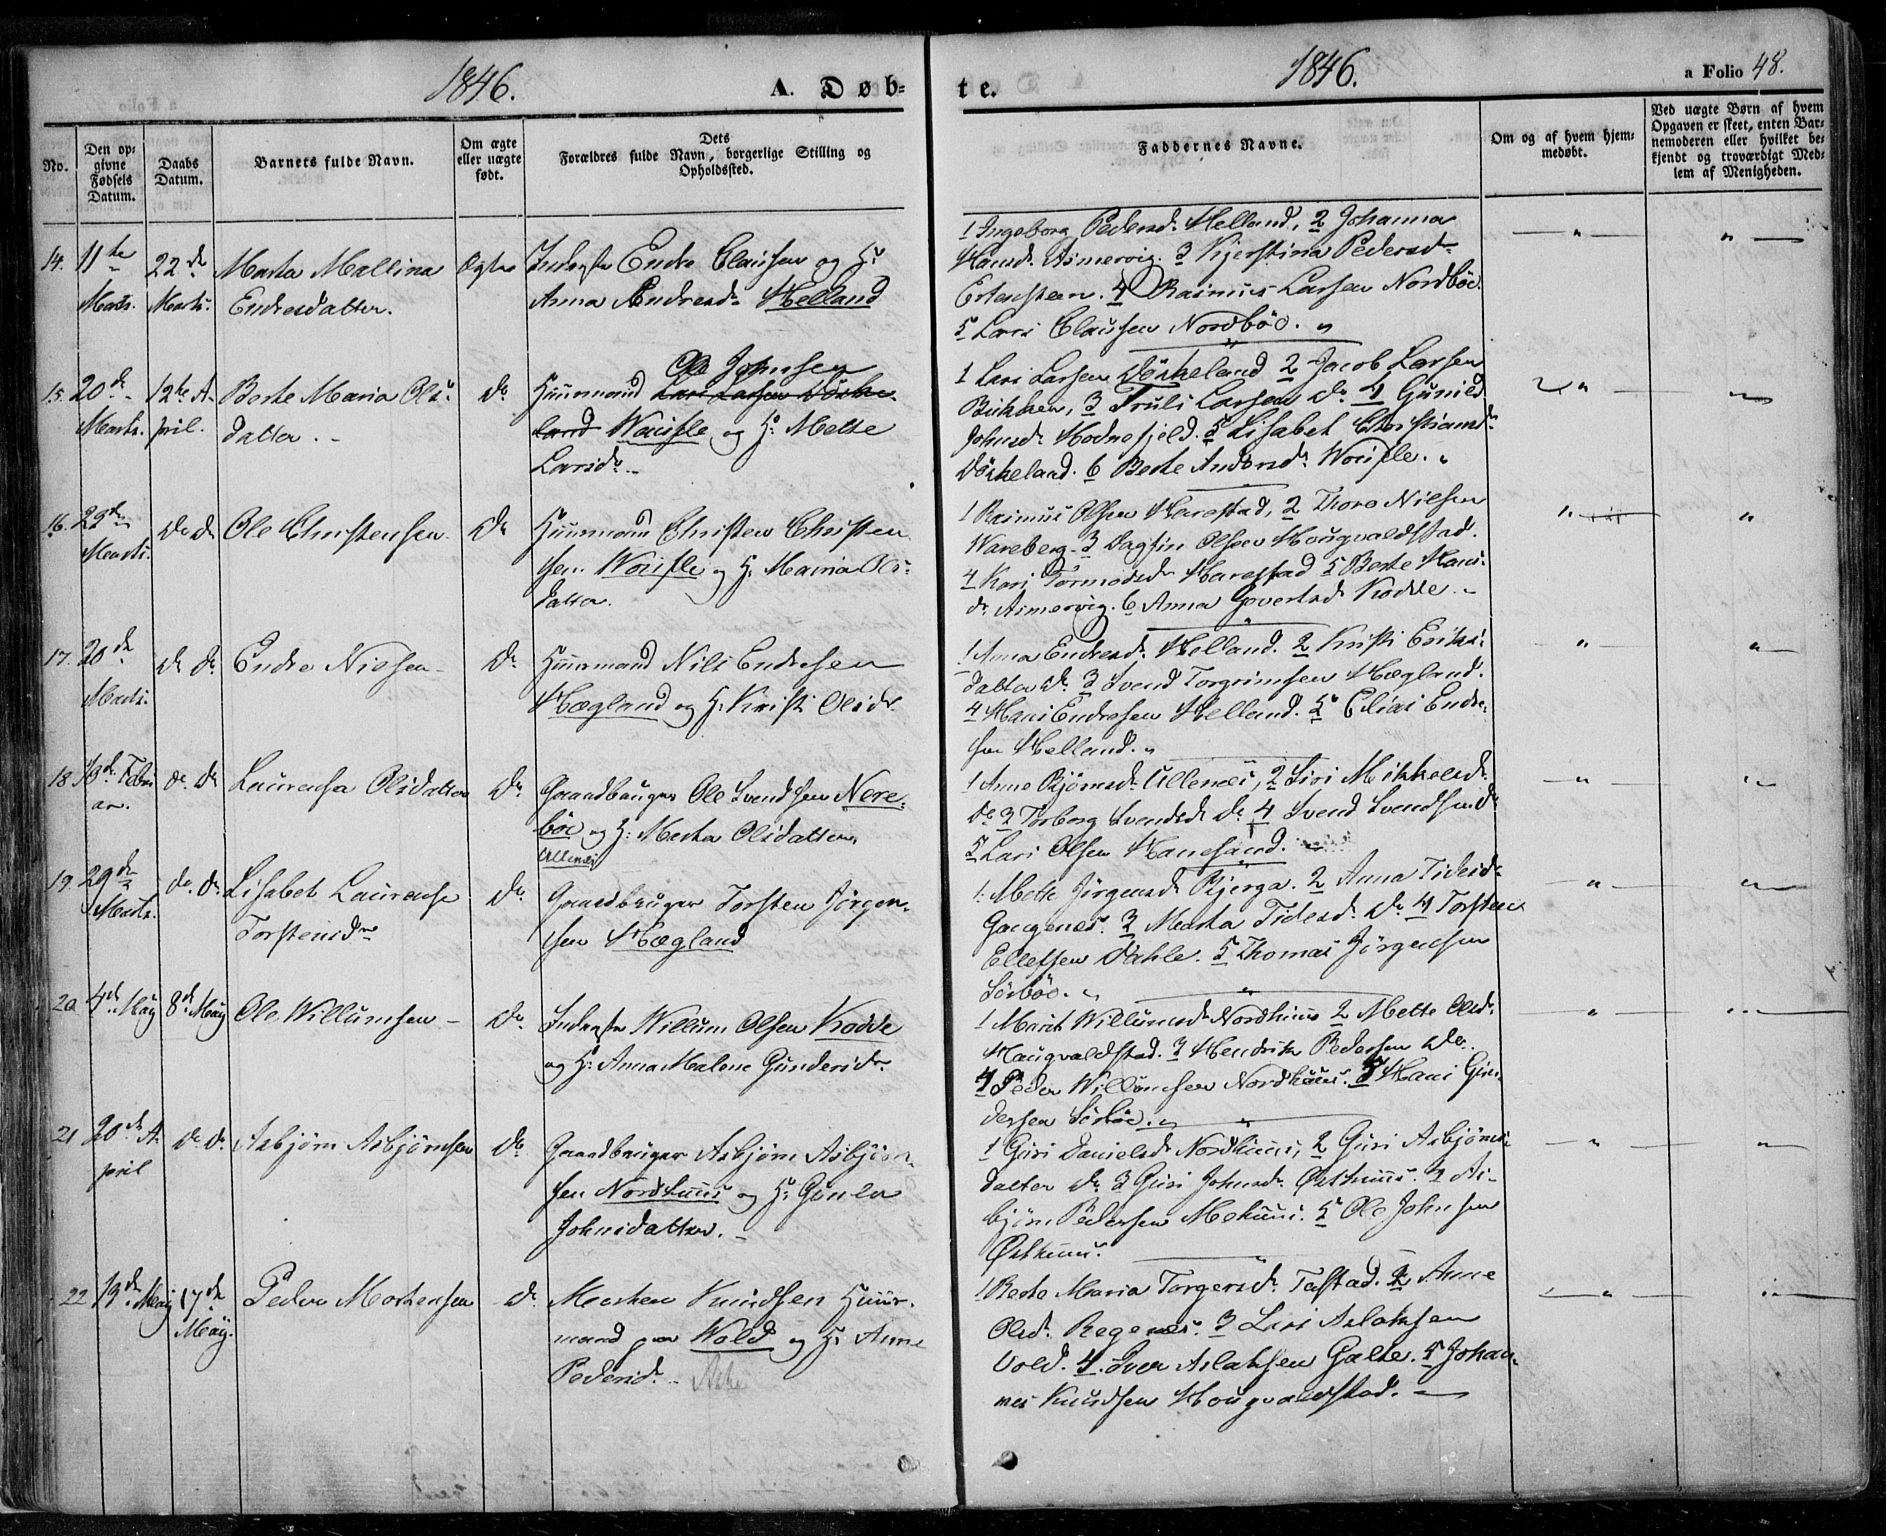 1846.
A. Døb-
te.
1846.
a Folio 48.
No.
Den op-
givne
Fødsels
Datum.
Daabs
Datum.
Barnets fulde Navn.
Om ægte
eller uægte
født.
Dets
Forældres fulde Navn, borgerlige Stilling og
Opholdssted.
Faddernes Navne.
Om og af hvem hjem-
medøbt.
Ved uægte Børn af hvem
Opgaven er skeet, enten Bar-
nemoderen eller hvilket be-
kjendt og troværdigt Med-
lem af Menigheden.
14. 11te Marts. 22de Marts. Marta Mallina
Endresdatter.
Ægte
Inderste Endre Clausen og H:
Anna Andresd. Helland
1 Ingeborg Pedersd. Helland, 2 Johanna
Hansd. Asmervig. 3 Kjerstina Pedersd.
Ertensteen. 4 Rasmus Larsen Nordböe
5 Lars Clausen Nordböe.
15. 20de Marts. 12te A-
pril.
Berte Maria Ols-
datter.
do
Ole Johnsen
Huusmand Lars Larsen Döske-
land Wousle og H: Mette
Larsdr.
1 Lars Larsen Döskeland 2 Jacob Larsen
Bikken, 3 Truls Larsen do 4 Gunild
Johnsd. Hodnefjeld. 5 Lisabet Christiansdr
Döskeland. 6 Berte Andersd. Wousle.
16. 23de Marts. do do Ole Christensen do
Huusmand Christen Christen-
sen Wousle og H. Maria Ols-
datter.
1 Rasmus Olsen Harestad, 2 Thore Nilsen
Wareberg. 3 Dagfin Olsen Hougvaldstad.
4 Kari Tormodsd. Harestad 5 Berte Hans-
dr Asmervig. 6 Anna Govertsd. Kodde.
17. 20de Marts. do do Endre Nielsen do
Huusmand Nils Endresen
Hægland og H. Kristi Olsdr.
1 Anna Endresd. Helland. 2 Kristi Eriks-
datter do 3 Svend Torgrimsen Hægland.
4 Hans Endresen Helland. 5 Elias Endre-
sen Helland.
18 13de Febru
ar.
do do Laurensa Olsdatter do
Gaardbruger Ole Svendsen Nere-
böe og H. Marta Olsdatter,
1 Anna Bjørnsd. Ullenæs, 2 Siri Mikkelsd.
do 3 Torborg Svendsd. do 4 Svend Svendsen do
5 Lars Olsen Hanesand.
19. 29de Marts. do do Lisabet Laurense
Torstensdr
do
Ullenæs
Gaardbruger Torsten Jörgen-
sen Hægland
1. Mette Jörgensd. Bjerga. 2 Anna Tidesd.
Gangenæs. 3 Marta Tidesd. do 4 Torsten
Ellefsen Dahle. 5 Thomas Jörgensen
Sörböe.
20 4de May 8de May Ole Willumsen do
Inderste Willum Olsen Kodde
og H: Anna Malene Gundersdr.
1 Marit Willumsd. Nordhuus 2 Mette Olsd.
Haugvaldstad. 3 Hendrik Pedersen do.
4 Peder Willumsen Nordhuus. 5 Hans Gun-
dersen Sörböe.
21 20de A-
pril
do do Asbjørn Asbjørnsen do
Gaardbruger Asbjørn Asbjørn-
sen Nordhuus og H: Gunla
Johnsdatter.
1 Guri Danielsd. Nordhuus, 2 Guri Asbjørns-
datter do 3 Guri Johnsd. Østhuus. 4 As-
bjørn Pedersen Mekuus. 5 Ole Johnsen
Østhuus.
22 13de May 17de May. Peder Mortensen do
Morten Knudsen Huus-
mand paa Wold og H: Anne
Pedersd.
1 Berte Maria Torgersd. Tastad. 2 Anne
Olsd. Regenæs. 3 Lars Aslaksen
Vold. 4. Iver Aslaksen Galte. 5 Johan-
nes Knudsen Hougvaldstad.